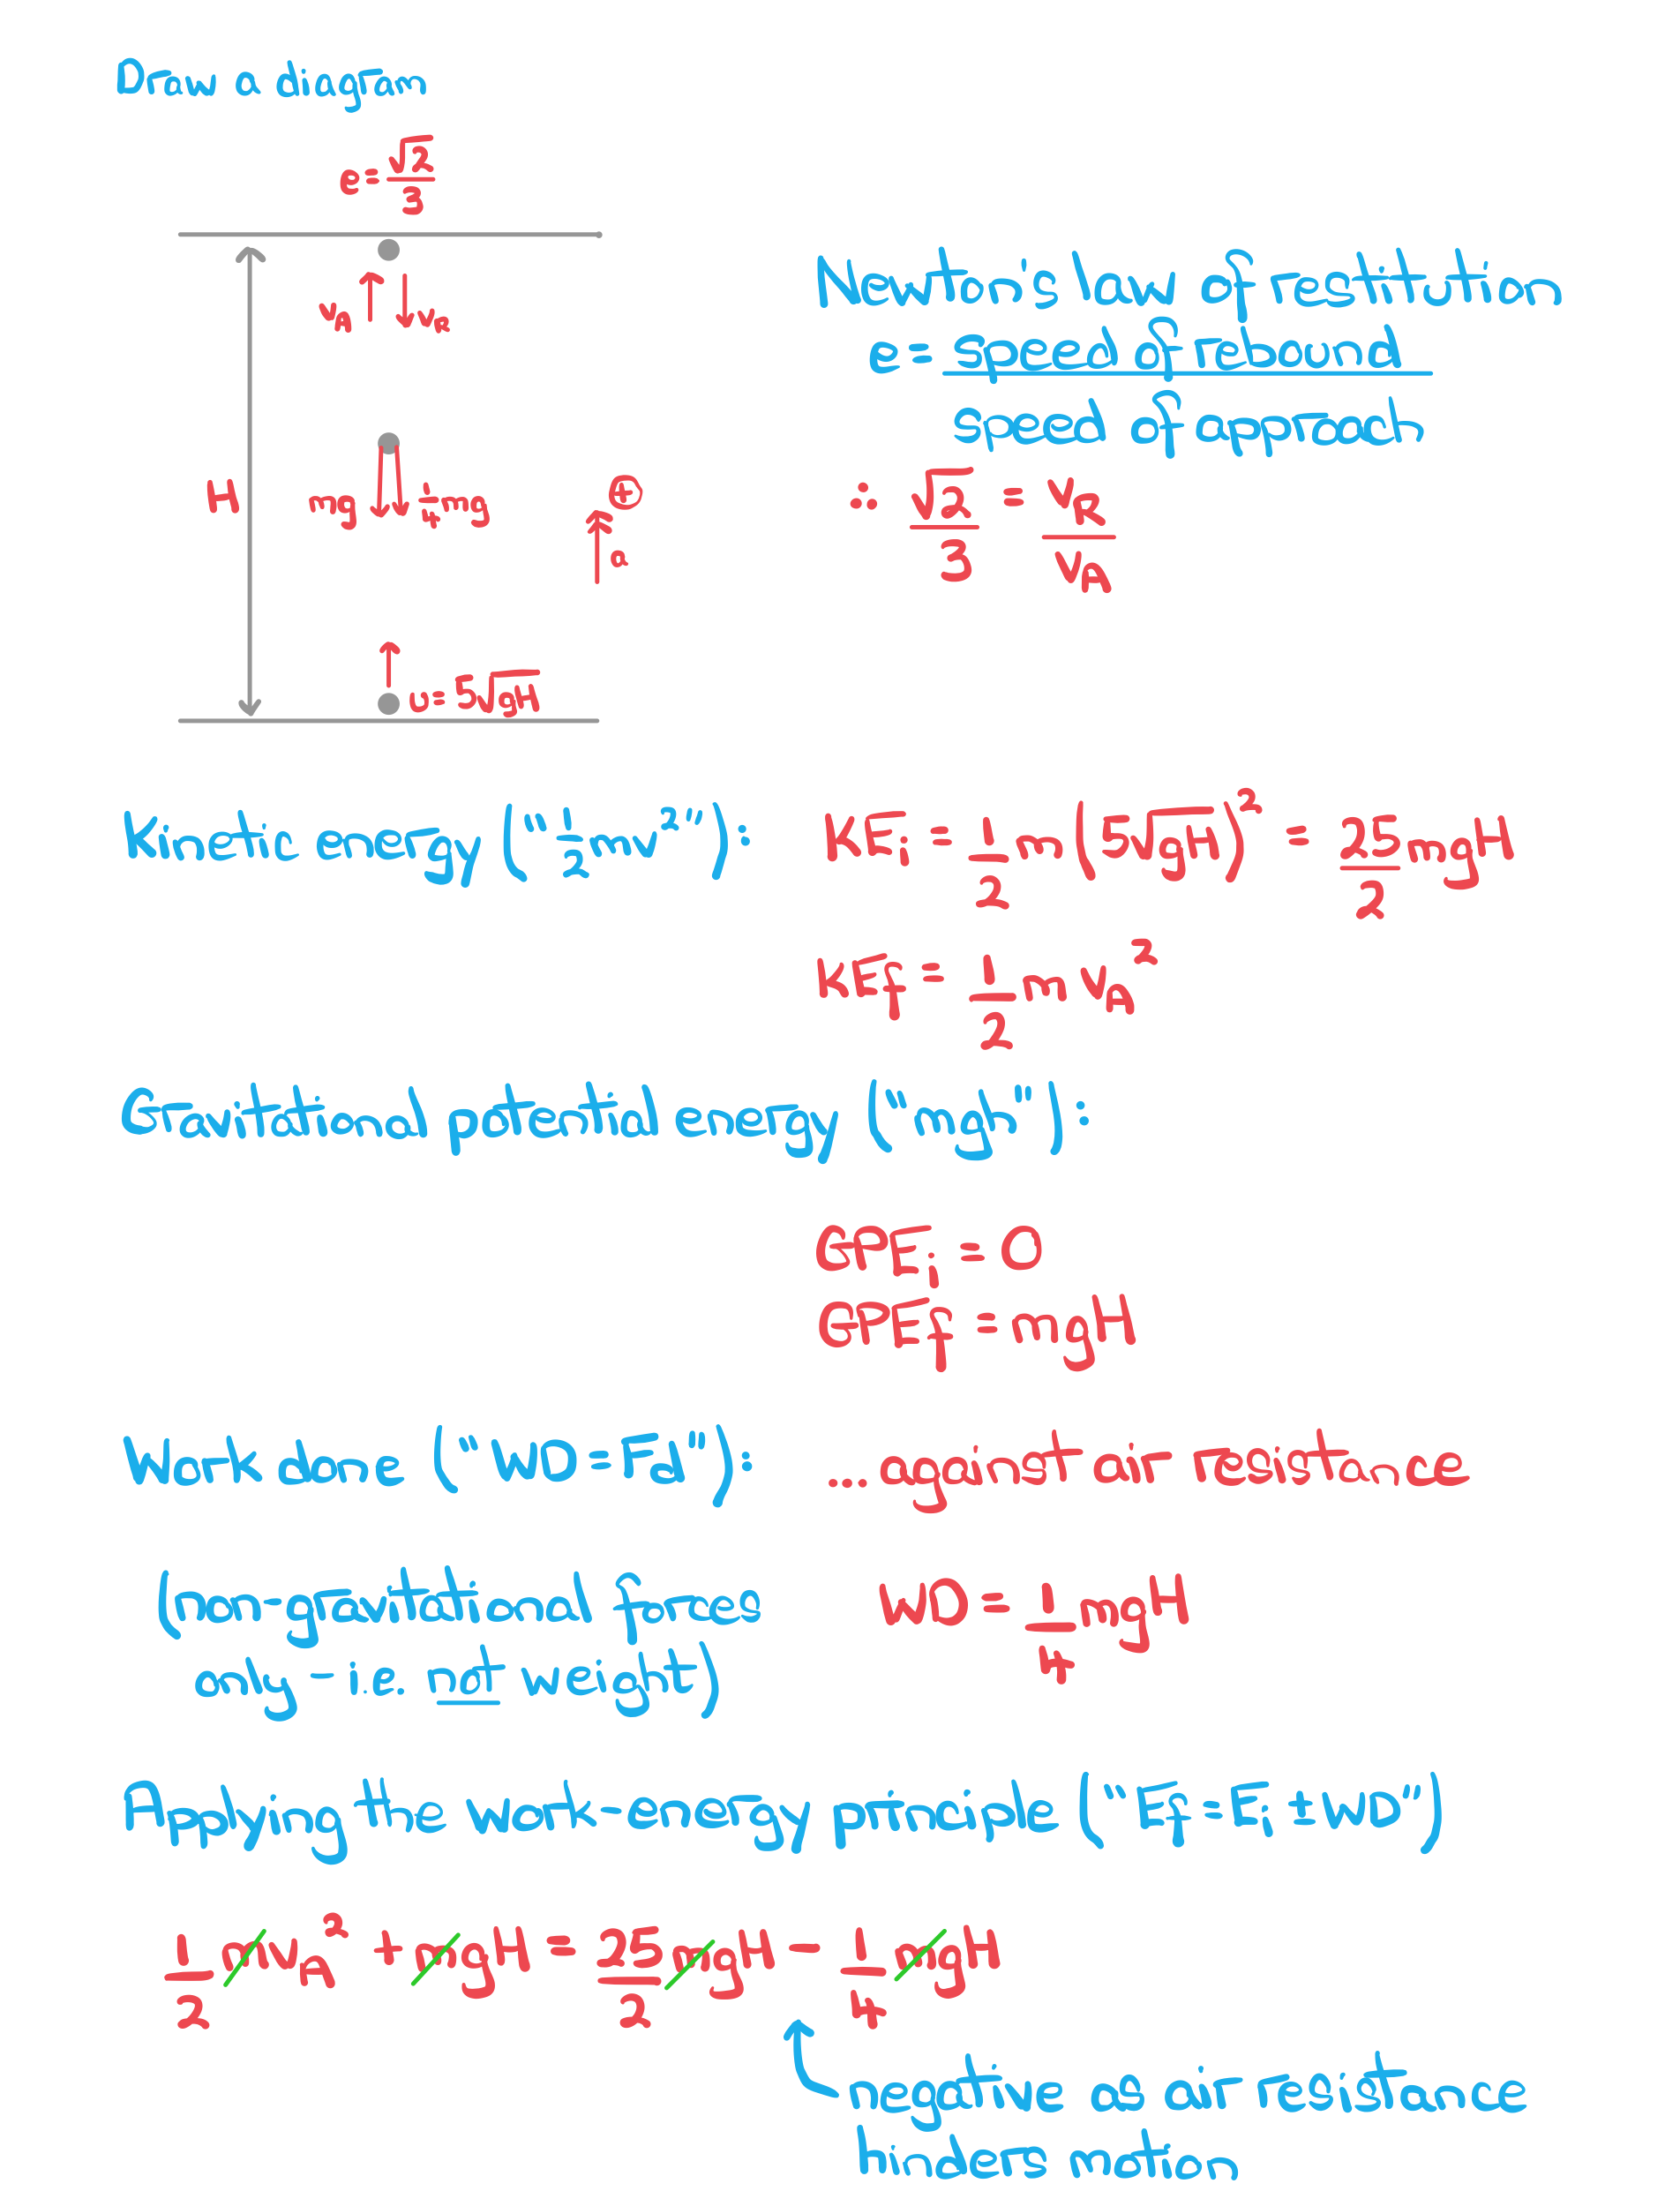 Draw a diagram
e = √2/3
v_A v_R
H mg 1/4 mg + a
u = 5√gH
Newton's law of restitution
e = speed of rebound
speed of approach
∴ √2/3 = v_R/v_A
Kinetic energy ("1/2 mv²"): KE_i = 1/2 m(5√gH)² = 25/2 mgH
KE_f = 1/2 m v_A²
Gravitational potential energy ("mgh"):
GPE_i = 0
GPE_f = mgH
Work done ("WD=Fd"): ...against air resistance
(non-gravitational forces WD = 1/4 mgH
only - i.e. not weight)
Applying the work-energy principle ("E_f = E_i ± WD")
1/2 m v_A² + mgH = 25/2 mgH - 1/4 mgH
negative as air resistance
hinders motion